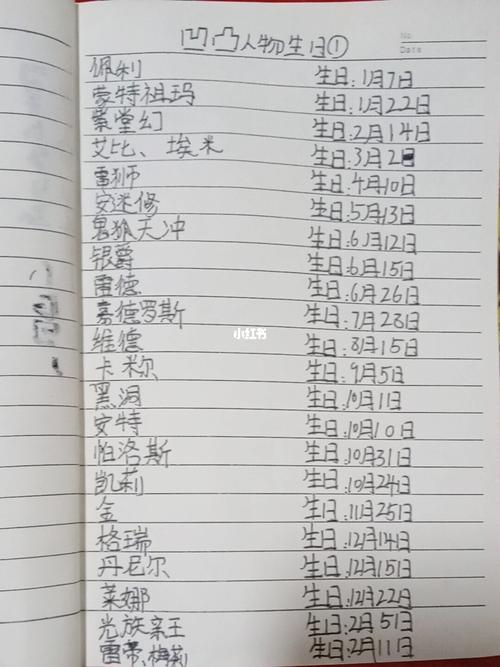 凹凸人物生日①
No.
Date
佩利 生日:1月7日
蒙特祖玛 生日:1月22日
紫堂幻 生日:2月14日
艾比、埃米 生日:3月2日
雷狮 生日:4月10日
安迷修 生日:5月13日
鬼狐天冲 生日:6月12日
银爵 生日:6月15日
雷德 生日:6月26日
嘉德罗斯 生日:7月28日
维德 生日:8月15日
卡米尔 生日:9月5日
黑洞 生日:10月1日
安特 生日:10月10日
帕洛斯 生日:10月31日
凯莉 生日:10月24日
金 生日:11月25日
格瑞 生日:12月14日
丹尼尔 生日:12月15日
莱娜 生日:12月22日
光族亲王 生日:2月51日
雷蒂、梅莉 生日:2月11日
小红书